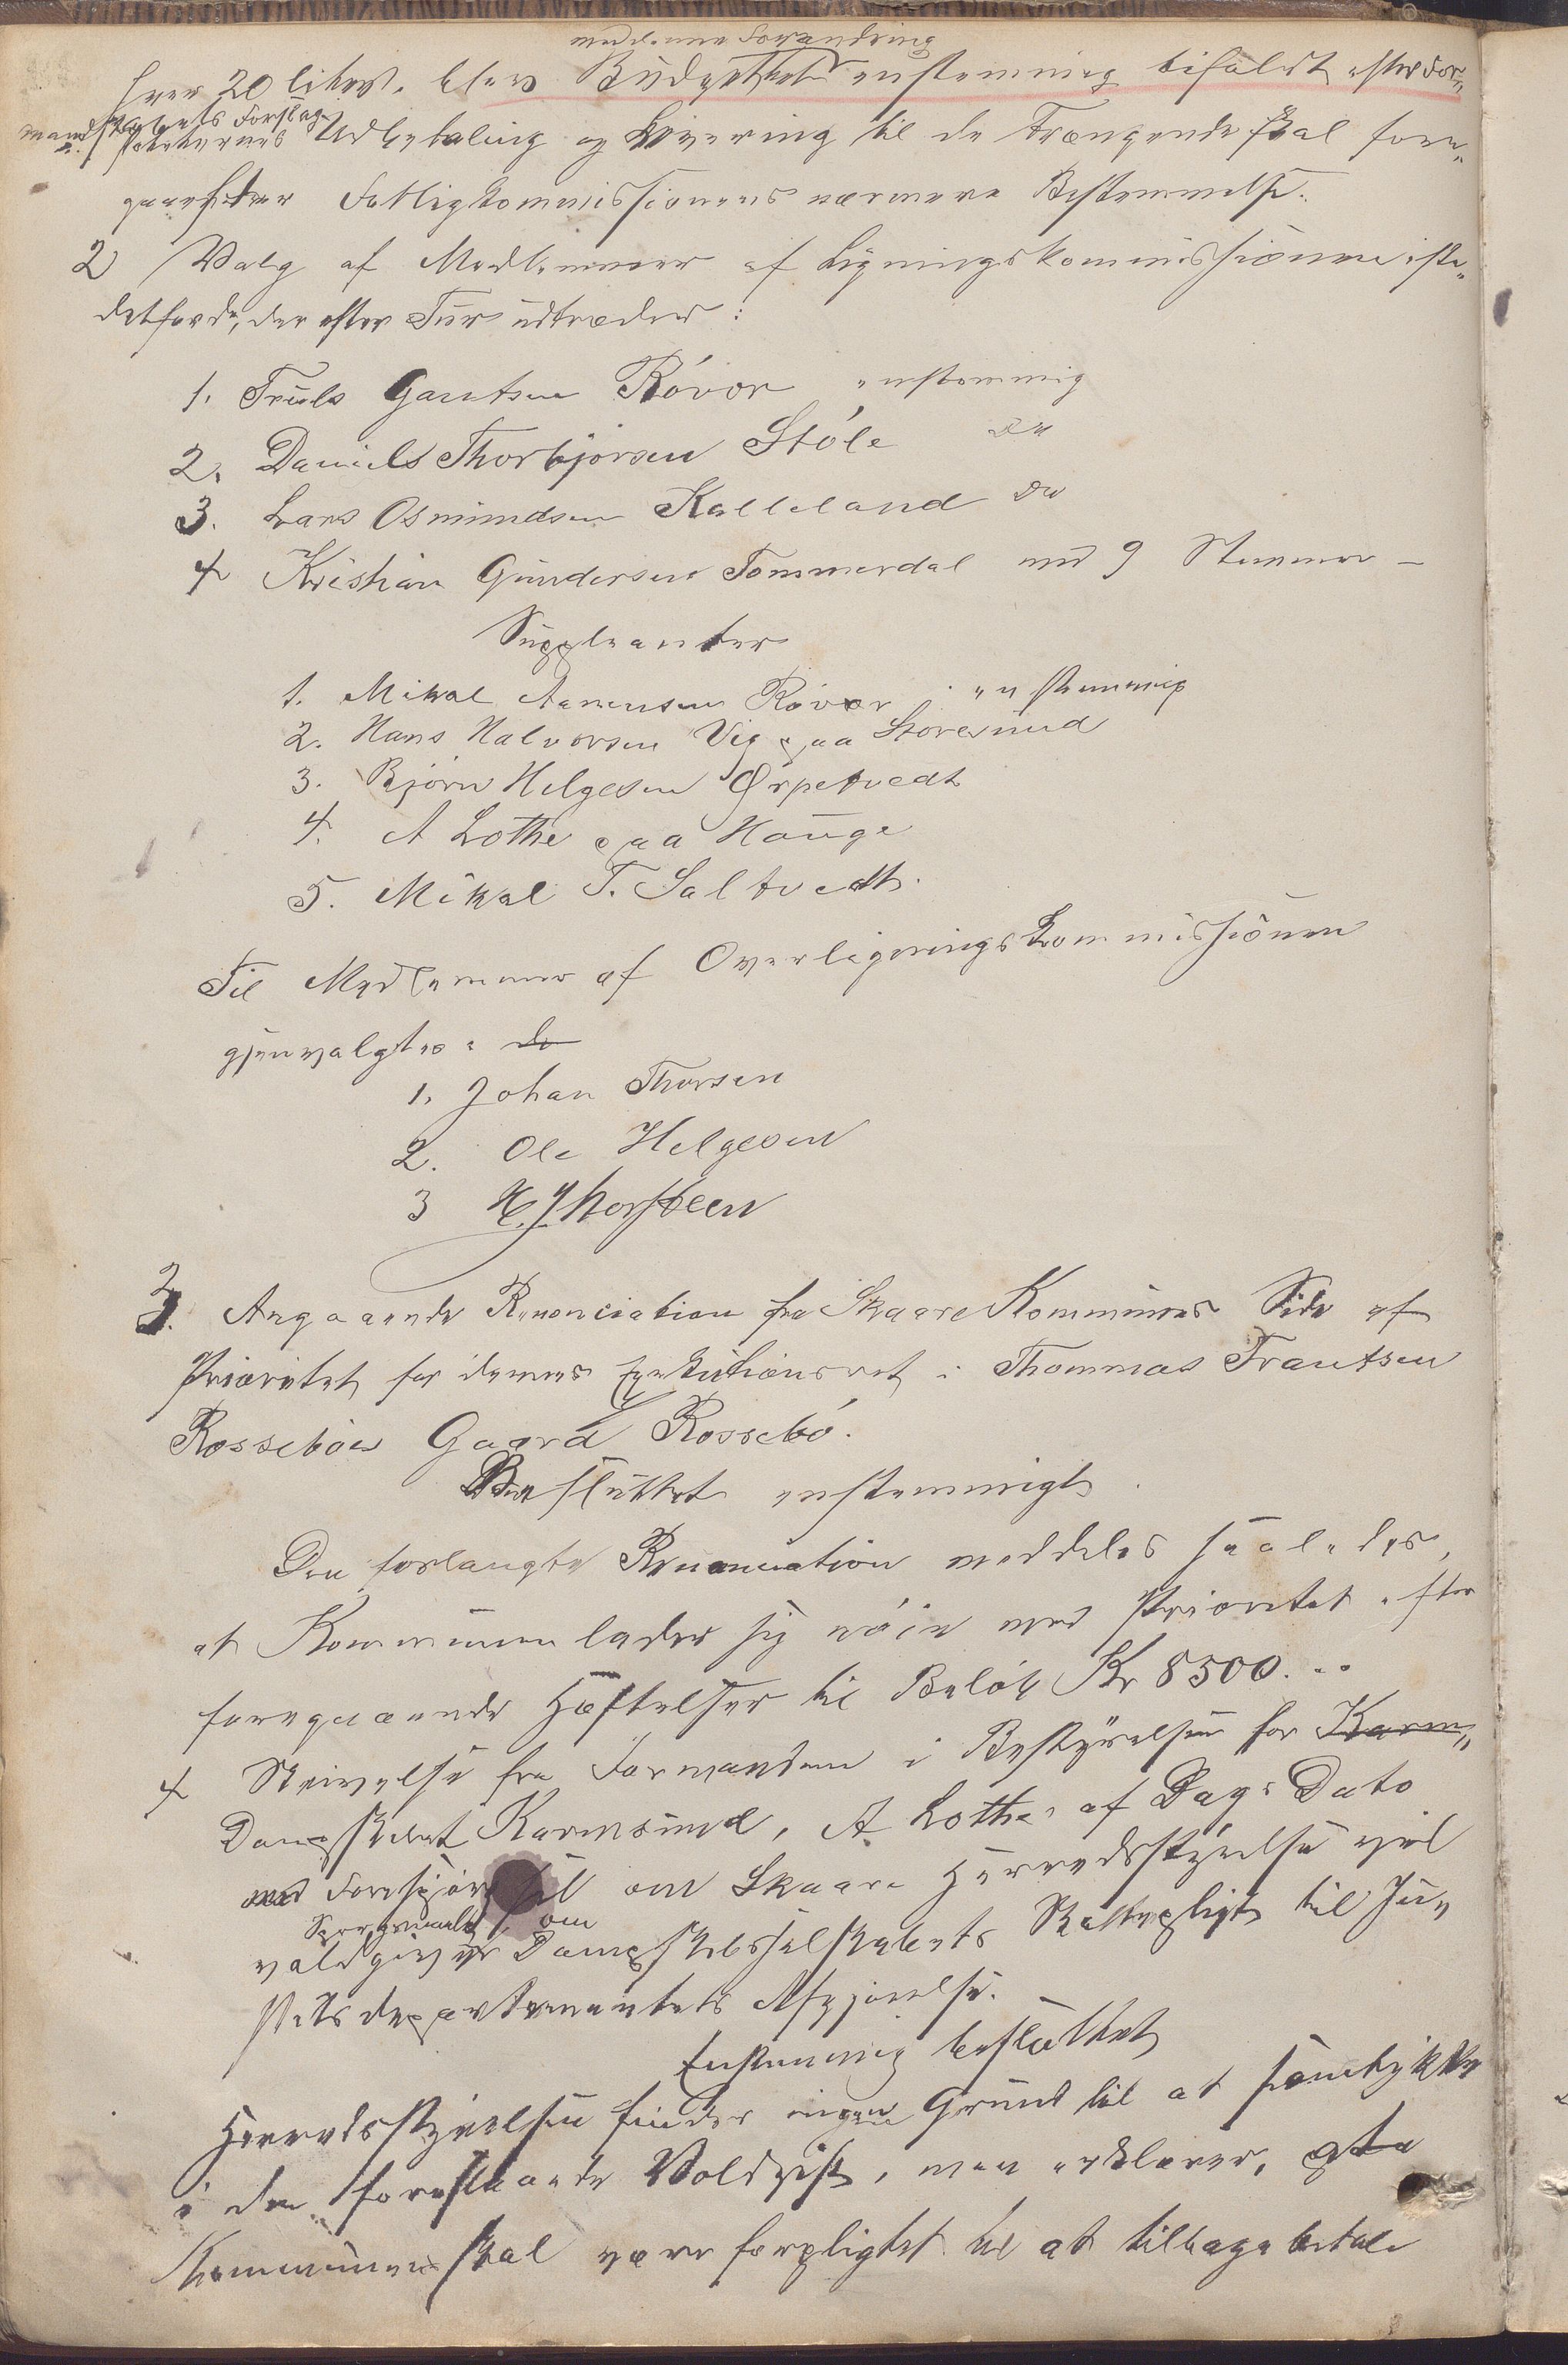 med denne Forandring
hver 20 liter. blev Budgettet enstemmig bifaldt efter For-
mandskabets Forslag.
Poteternes Udbetaling og Levering til de Trængende skal fore-
gaa efter Fattigkommissionens nærmere Bestemmelse.
2 Valg af Medlemmer af Ligningskommissionen iste-
detfor de, der efter Tur udtræder:
1. Truls Gautsen Róvor enstemmig
2. Daniels Thorbjørsen Stóle do
3. Lars Osmundsen Kalleland do
4 Kristian Gundersen Tømmerdal med 9 Stemmer –
Suppleanter
1. Mikal Aanensen Róvær enstemmig
2. Hans Halvorsen Vig paa Storesund
3. Bjórn Helgesen Ørpetvedt
4. A Lothe paa Hauge
5. Mikal T. Saltvedt.
Til Medlemmer af Overligningskommissionen
gjenvalgtes: do
1. Johan Thorsen
2. Ole Helgesen
3 H. Thorsteen
3. Angaaende Renonciation fra Skaare Kommunes Side af
Prioritet for dennes Exekutionsret i Thommas Trautsen
Rossebøes Gaard Rossebó.
Besluttet enstemmigt.
Den forlangte Renonciation meddeles saaledes,
at Kommunen lader sig nóie med Prioritet efter
foregaaende Hæftelser til Beløb Kr 8500...
4 Skrivelse fra Formanden i Bestyrelsen for Karm-
Dampskibet Karmsund, A Lothe, af Dags Dato
med Forespørgsel om Skaare Herredsstyrelse vil
Spørgsmaalet om
voldgive Dampskibsselskabets Skattepligt til Ju-
stitsdepartementets Afgjørelse.
Enstemmig besluttet
Herredsstyrelsen finder ingen Grund til at samtykke
i den foreslaaede Voldgift, men erklærer, at
Kommunen skal være forpligtet til at tilbagebetale